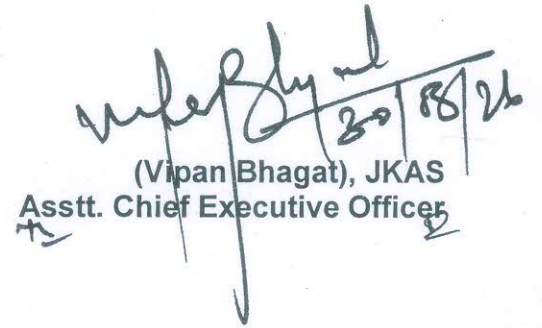 30/08/26
(Vipan Bhagat), JKAS
Asstt. Chief Executive Officer